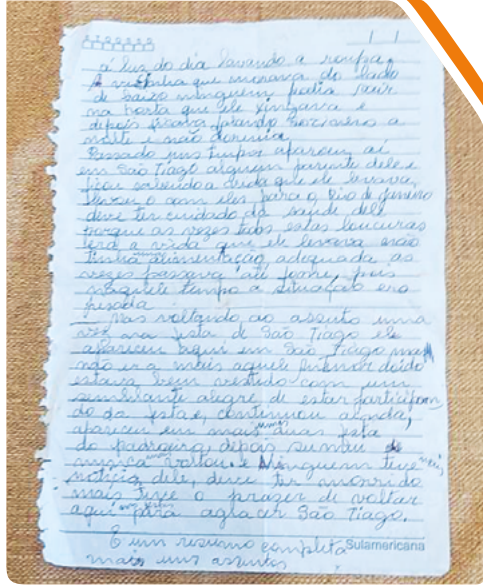 a luz do dia lavando a roupa.
A vizinha que morava do lado
de baixo ninguem podia sair
na horta que ele xingava e
depois ficava falando sozinho a
noite e não dormia.
Passado uns tempos apareceu aí
em São Tiago alguem parente dele e
ficou sabendo a vida que ele levava,
levou o com eles para o Rio de Janeiro
deve ter cuidado da saude dele
porque as vezes todas estas loucuras
era a vida que ele levava não
tinha alimentação adequada as
vezes passava até fome, pois
naquele tempo a situação era
pesada.
Mas voltando ao assunto uma
vez na festa de São Tiago ele
apareceu aqui em São Tiago mas
não era mais aquele doido
estava bem vestido com um
semblante alegre de estar participan
do da festa e, continuou ainda,
apareceu em mais duas festa
do padroeiro, depois sumiu
nunca voltou. e Ninguem teve
noticia dele, deve ter morrido
mais teve o prazer de voltar
aqui para agradecer São Tiago.
É um resumo completo
mais uns assuntos
Sulamericana